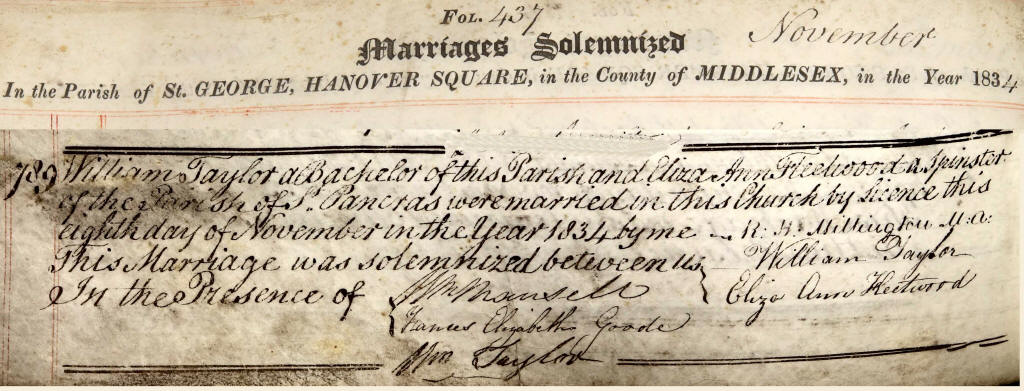 FOL. 437
Marriages Solemnized
November
In the Parish of St. GEORGE, HANOVER SQUARE, in the County of MIDDLESEX, in the Year 1834
789 William Taylor a Bachelor of this Parish and Eliza Ann Fleetwood a Spinster
of the Parish of St. Pancras were married in this Church by Licence this
eighth day of November in the Year 1834 by me R. H. Millington M.A.
This Marriage was solemnized between us William Taylor
Eliza Ann Fleetwood
In the Presence of Wm Mansell
Frances Elizabeth Goode
Wm Taylor